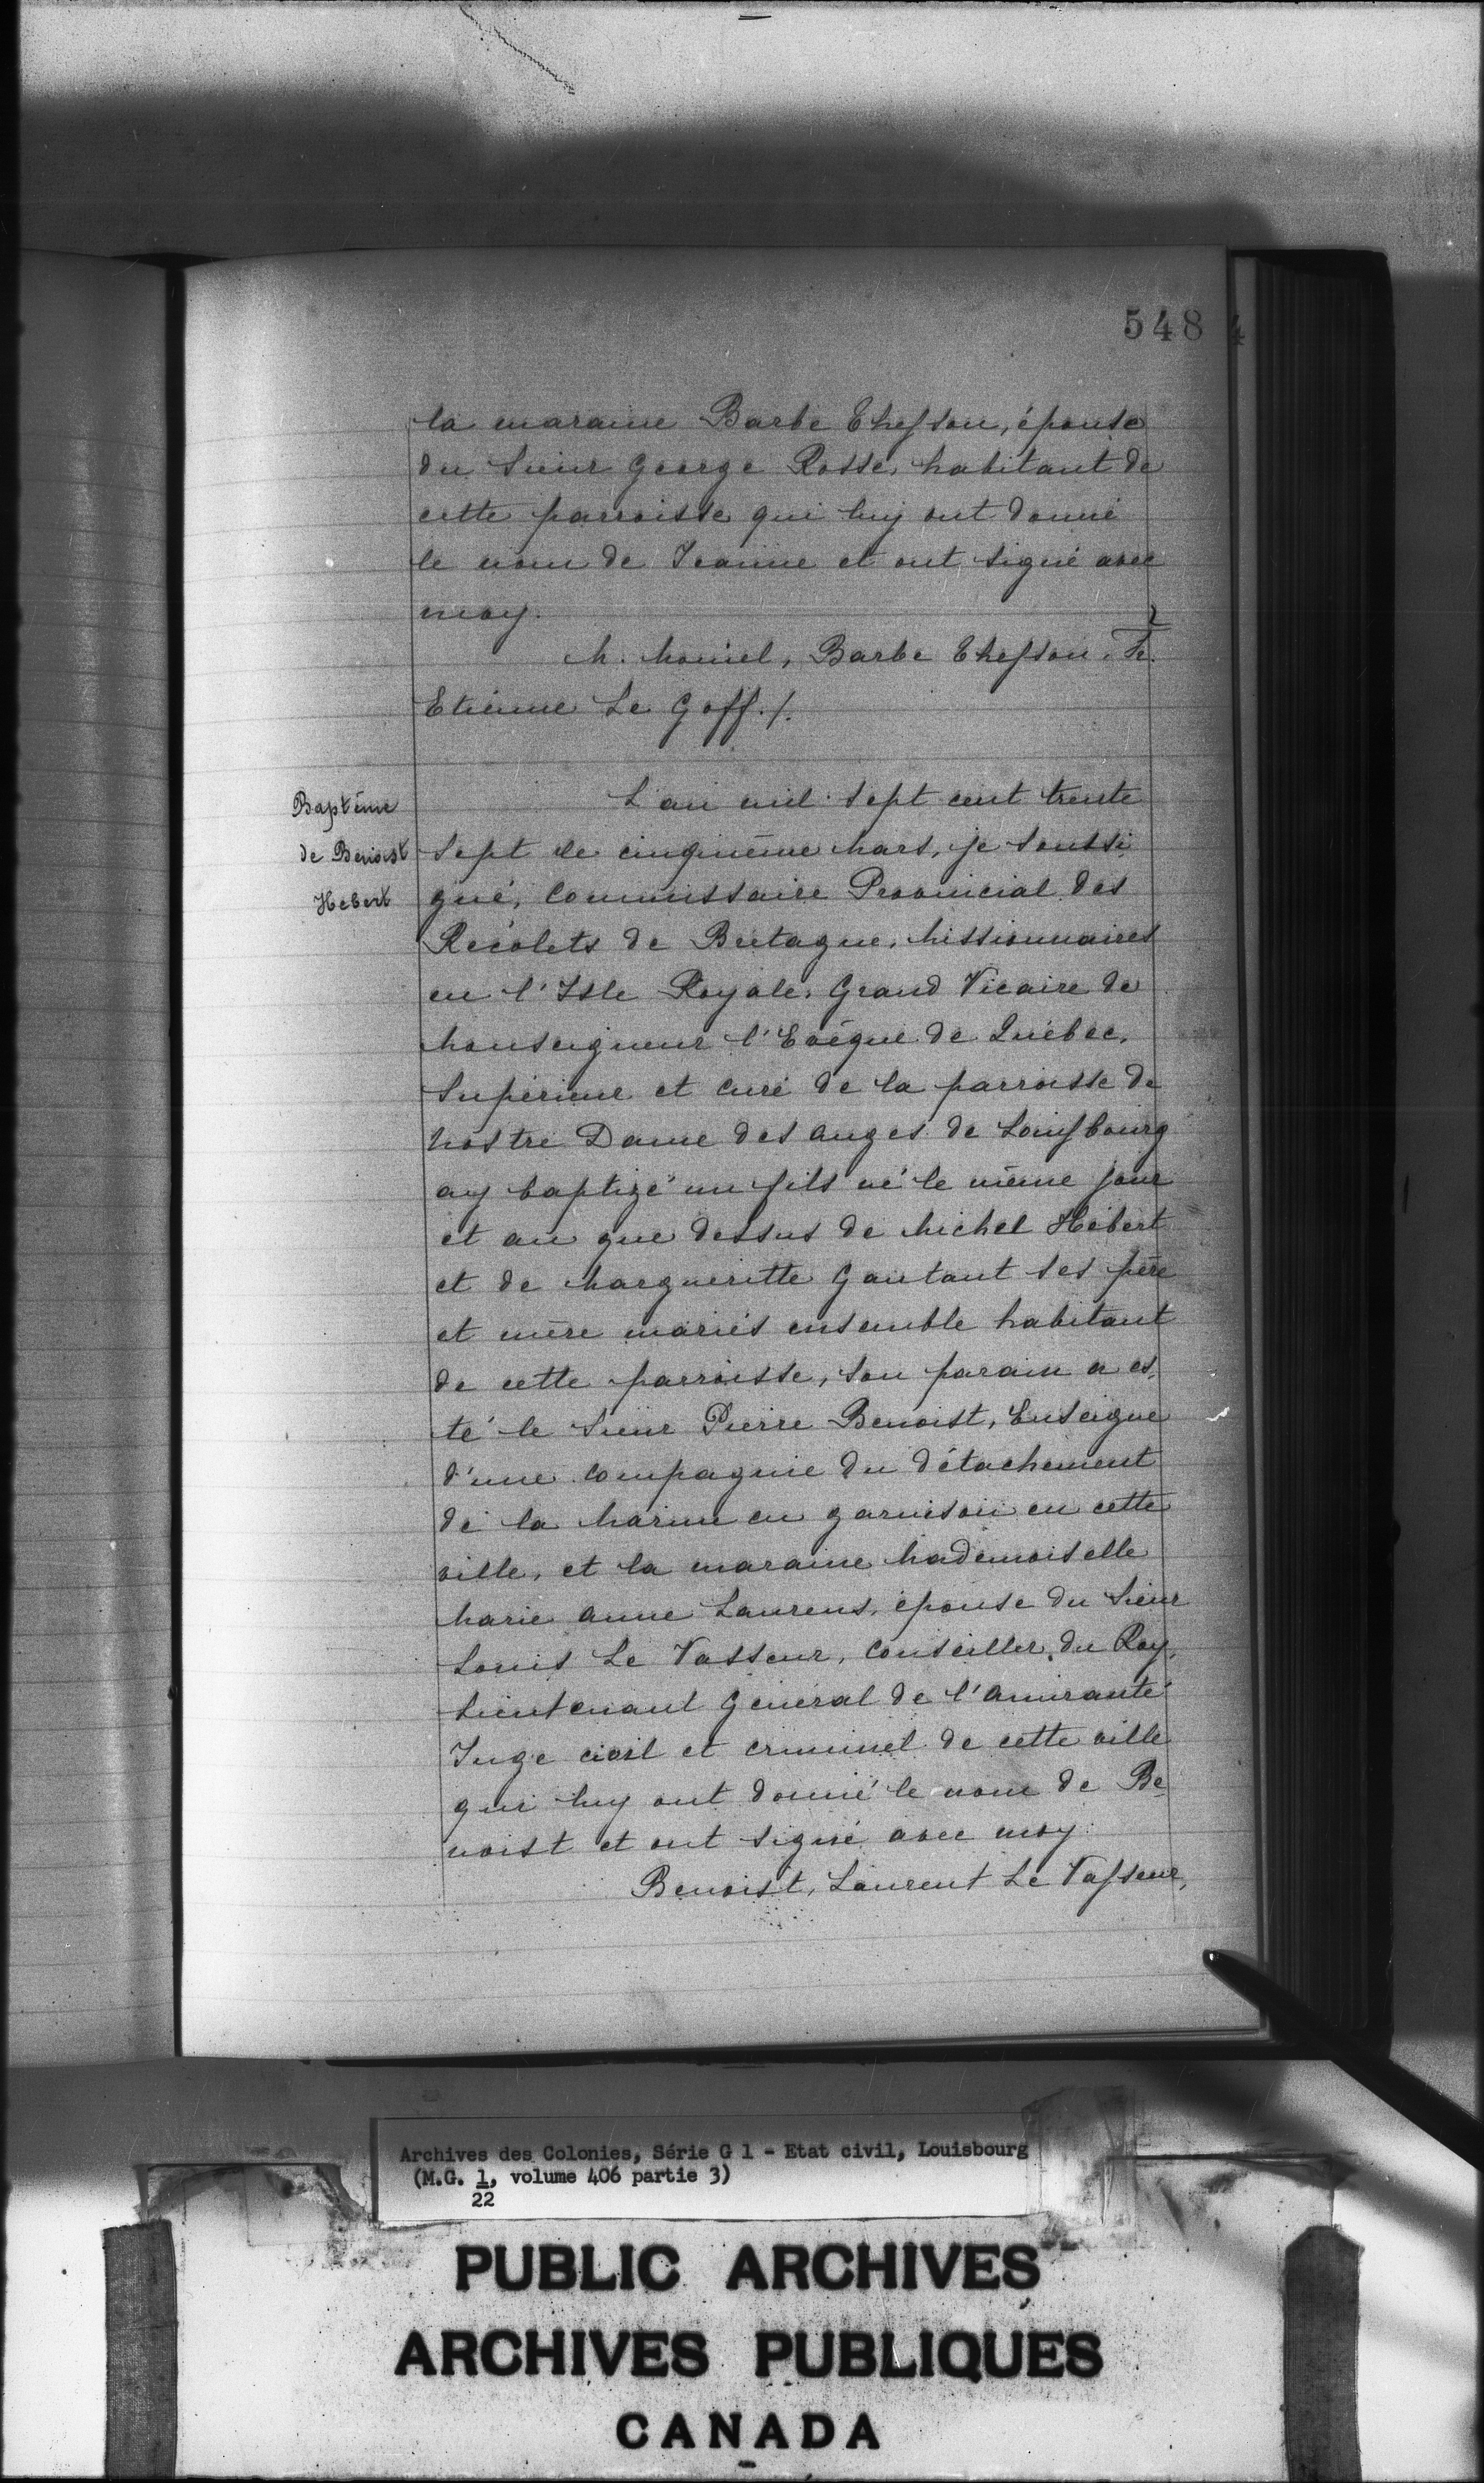 548
la maraine Barbe Thesson, épouse
du Sieur George Rosse, habitant de
cette parroisse qui luy ont donné
le nom de Jeanne et ont signé avec
moy.
M. Moniel, Barbe Thesson. Fr.
Etienne Le Goff./.
Baptême
de Benoist
Hebert
L an mil sept cent trente
sept le cinquième Mars, je soussi
gné, Commissaire Provincial des
Recolets de Bretagne, Missionnaires
en l'Isle Royale, Grand Vicaire de
Monseigneur l'Evêque de Québec,
Supérieur et curé de la parroisse de
Nostre Dame des anges de Louisbourg
ay baptizé un fils né le même jour
et an que dessus de Michel Hébert
et de Margueritte Gautant ses père
et mère mariés ensemble habitant
de cette parroisse, son parain a es
té le Sieur Pierre Benoist, Enseigne
d'une compagnie du détachement
de la Marine en garnison en cette
ville, et la maraine Mademoiselle
Marie Anne Laurens, épouse du Sieur
Louis Le Vasseur, Conseiller du Roy,
Lieutenant Général de l'Amirauté
Juge civil et criminel de cette ville
qui luy ont donné le nom de Be
noist et ont signé avec moy.
Benoist, Laurent Le Vasseur,
Archives des Colonies, Série G 1 - Etat civil, Louisbourg
(M.G. 1, volume 406 partie 3)
22
PUBLIC ARCHIVES
ARCHIVES PUBLIQUES
CANADA